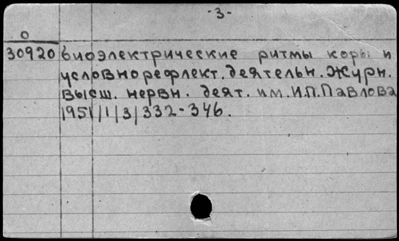 -3-
0
30920 Биоэлектрические ритмы коры и
условнорефлект. деятельн. Журн.
высш. нервн. деят. им. И.П. Павлова
1951/1/3/332-346.